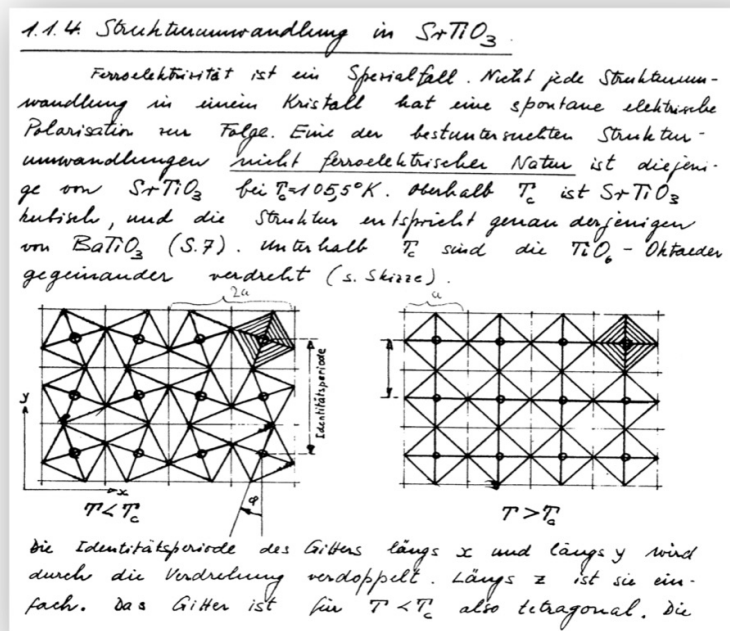 1.1.4. Strukturumwandlung in SrTiO₃.
Ferroelektrizität ist ein Spezialfall. Nicht jede Strukturum-
wandlung in einem Kristall hat eine spontane elektrische
Polarisation zur Folge. Eine der bestuntersuchten Struktur-
umwandlungen nicht ferroelektrischer Natur ist diejeni-
ge von SrTiO₃ bei T_c=105,5°K. Oberhalb T_c ist SrTiO₃
kubisch, und die Struktur entspricht genau derjenigen
von BaTiO₃ (S.7). Unterhalb T_c sind die TiO₆-Oktaeder
gegeneinander verdreht (s. Skizze).
2a
a
Identitätsperiode
y
x
φ
T<T_c
T>T_c
Die Identitätsperiode des Gitters längs x und längs y wird
durch die Verdrehung verdoppelt. Längs z ist sie ein-
fach. Das Gitter ist für T<T_c also tetragonal. Die